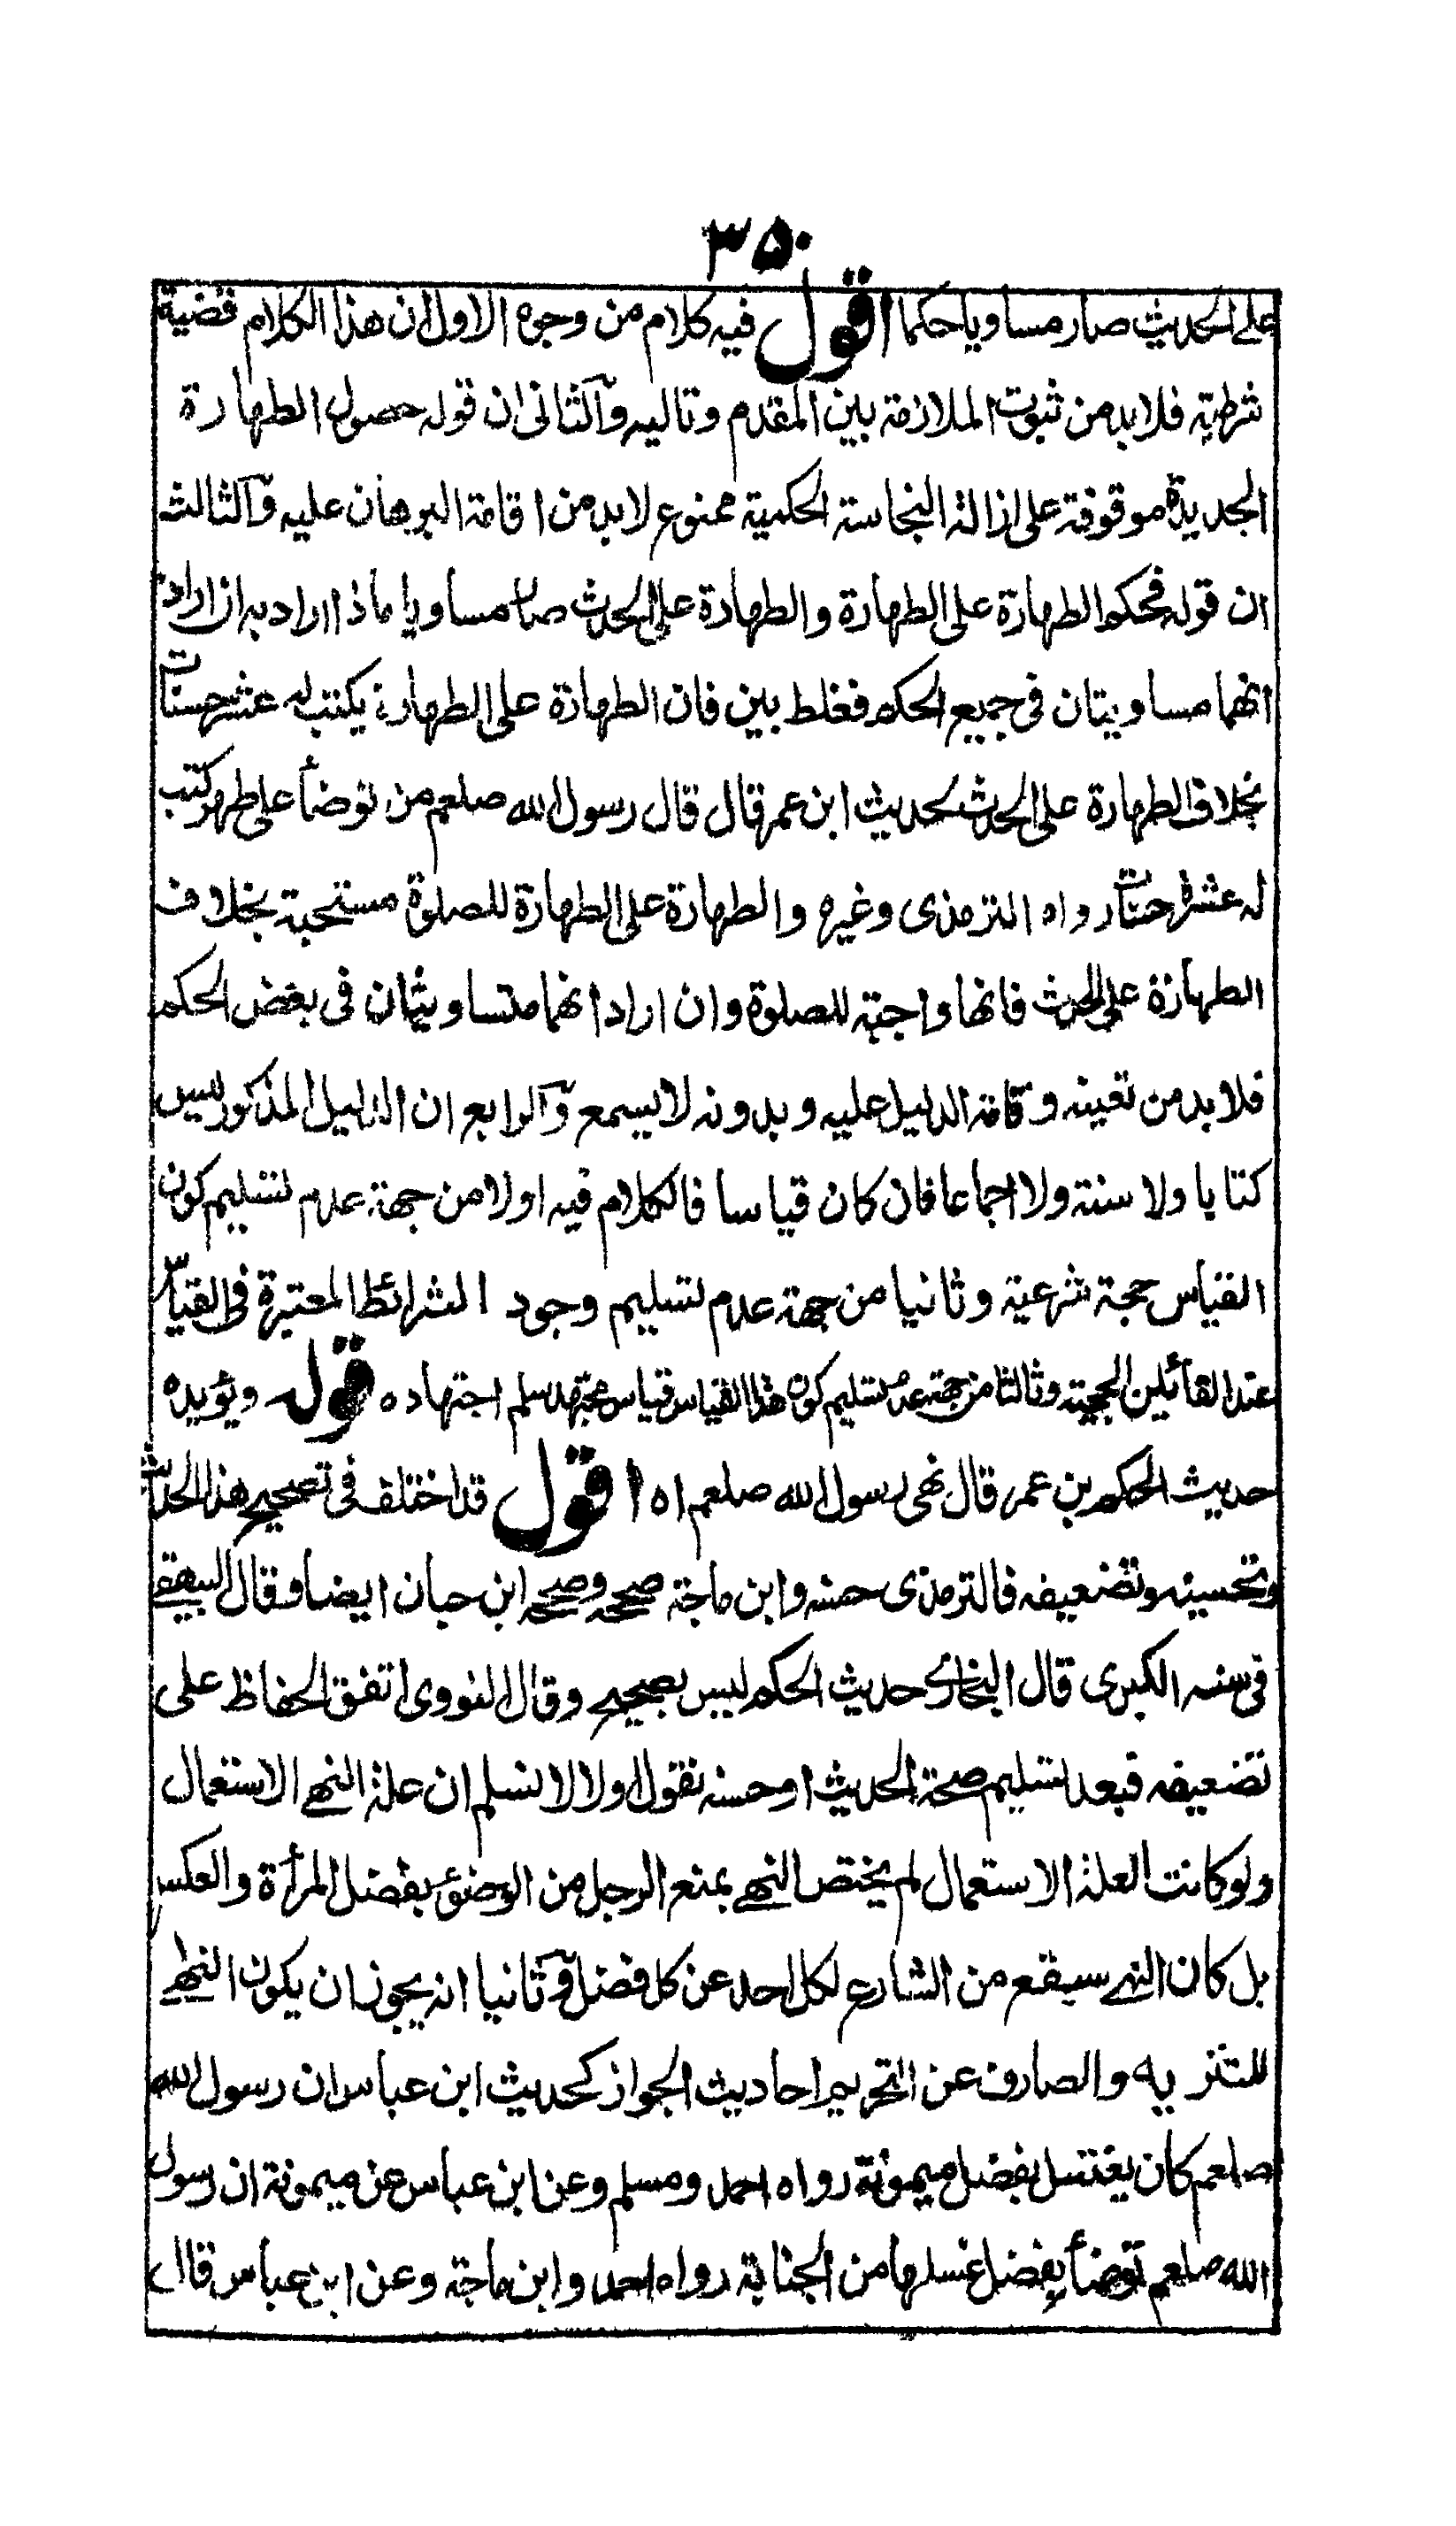 ٣٥٠
على الحديث صار مساويا حكما اقول فيه كلام من وجوه الاول ان هذا الكلام قضية
شرطية فلا بد من ثبوت الملازمة بين المقدم وتاليه والثانى ان قوله حصول الطهارة
الجديدة موقوفة على ازالة النجاسة الحكمية ممنوع لا بد من اقامة البرهان عليه والثالث
ان قوله فحكم الطهارة على الطهارة والطهارة على الحدث صار مساويا ماذا اراد به ان اراد
انهما مساويتان فى جميع الحكم فغلط بين فان الطهارة على الطهارة يكتب له عشر حسنات
بخلاف الطهارة على الحدث لحديث ابن عمر قال قال رسول الله صلعم من توضأ على طهر كتب
له عشر حسنات رواه الترمذى وغيره والطهارة على الطهارة للصلوة مستحبة بخلاف
الطهارة على الحدث فانها واجبة للصلوة وان اراد انهما متساويتان فى بعض الحكم
فلا بد من تعينه وقامة الدليل عليه وبدونه لا يسمع والرابع ان الدليل المذكور ليس
كتابا ولا سنة ولا اجماعا فان كان قياسا فالكلام فيه اولا من جهة عدم تسليم كون
القياس حجة شرعية وثانيا من جهة عدم تسليم وجود الشرائط المعتبرة فى القياس
عند القائلين الحجية وثالثا من جهة عدم تسليم كون هذا القياس قياس مجتهد سلم اجتهاده قوله ويؤيده
حديث الحكم بن عمر قال نهى رسول الله صلعم اه اقول قد اختلف فى تصحيح هذا الحديث
وتحسينه وتضعيفه فالترمذى حسنه وابن ماجة صححه وصححه ابن حبان ايضا وقال البيهقى
فى سننه الكبرى قال البخارى حديث الحكم ليس بصحيح وقال النووى اتفق الحفاظ على
تضعيفه فبعد تسليم صحة الحديث او حسنه نقول اولا لا نسلم ان علة النهى الاستعمال
ولو كانت العلة الاستعمال لم يختص النهى بمنع الرجل من الوضوء بفضل المرأة والعكس
بل كان النهى سيقع من الشارع لكل احد عن كل فضل وثانيا انه يجوز ان يكون النهى
للتنزيه والصارف عن التحريم احاديث الجواز كحديث ابن عباس ان رسول الله
صلعم كان يغتسل بفضل ميمونة رواه احمد ومسلم وعن ابن عباس عن ميمونة ان رسول
الله صلعم توضأ بفضل غسلها من الجنابة رواه احمد وابن ماجة وعن ابن عباس قال